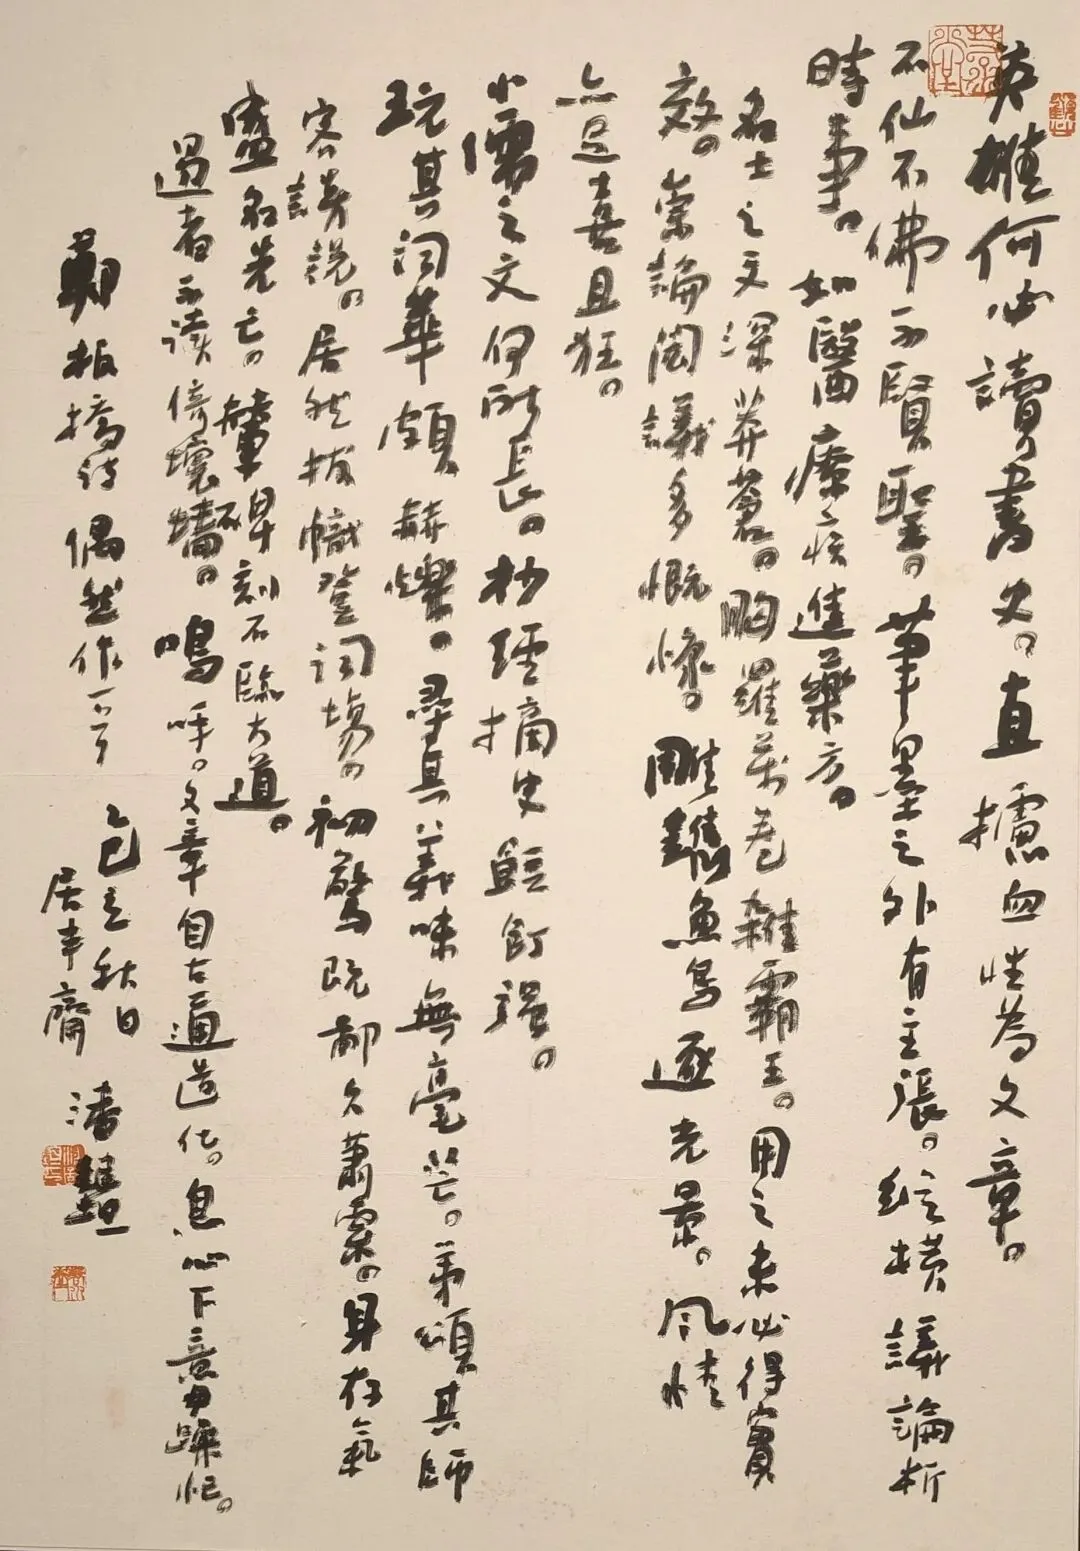 英雄何必讀書史。直攄血性為文章。
不仙不佛不賢聖。筆墨之外有主張。縱橫議論析
時事。如醫療疾進藥方。
名士之文深莽蒼。胸羅萬卷雜霸王。用之未必得實
效。崇論閎議多慨慷。雕鐫魚鳥逐光景。風情
亦足喜且狂。
小儒之文何所長。抄經摘史餖飣強。
玩其詞華頗赫爍。尋其義味無毫芒。弟頌其師
客談說。居然拔幟登詞場。初驚既鄙久蕭索。身存氣
盛名先亡。輦碑刻石臨大道。
過者不讀倚壞墻。嗚呼。文章自古通造化。息心下意毋躁忙。
鄭板橋詩偶然作一首
乙巳立秋日
居半齋 潘